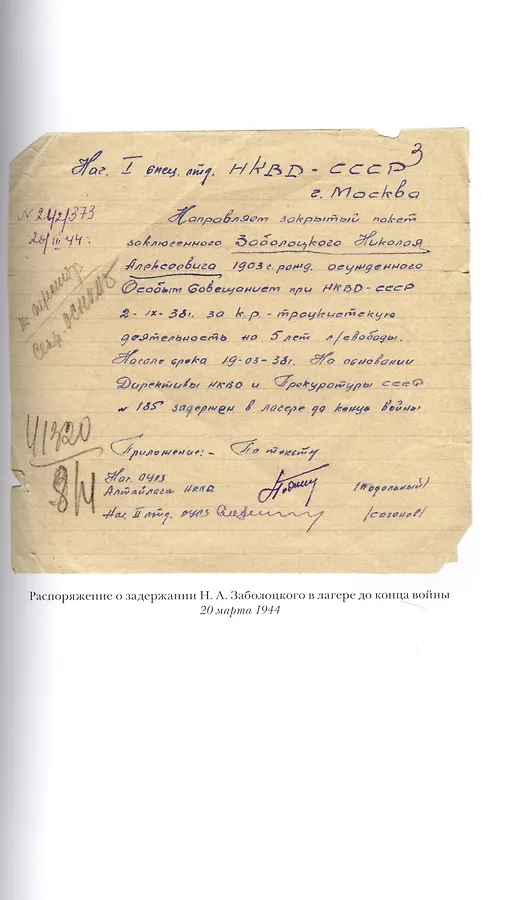 3
Нач. I спец. отд. НКВД-СССР
г. Москва
N 242/373
20/III 44г.
Направляем закрытый пакет
заключенного Заболоцкого Николая
Алексеевича 1903 г. рожд. осужденного
Особым Совещанием при НКВД-СССР
2-IX-38г. за к.р.-троцкистскую
деятельность на 5 лет л/свободы.
Начало срока 19-03-38г. На основании
Директивы НКВД и Прокуратуры СССР
N 185 задержан в лагере до конца войны
41320
Приложение:- По тексту
Нач. ОУРЗ
Алтайлага НКВД (Подольный)
Нач. II отд. ОУРЗ (Сазонов)
Распоряжение о задержании Н. А. Заболоцкого в лагере до конца войны
20 марта 1944